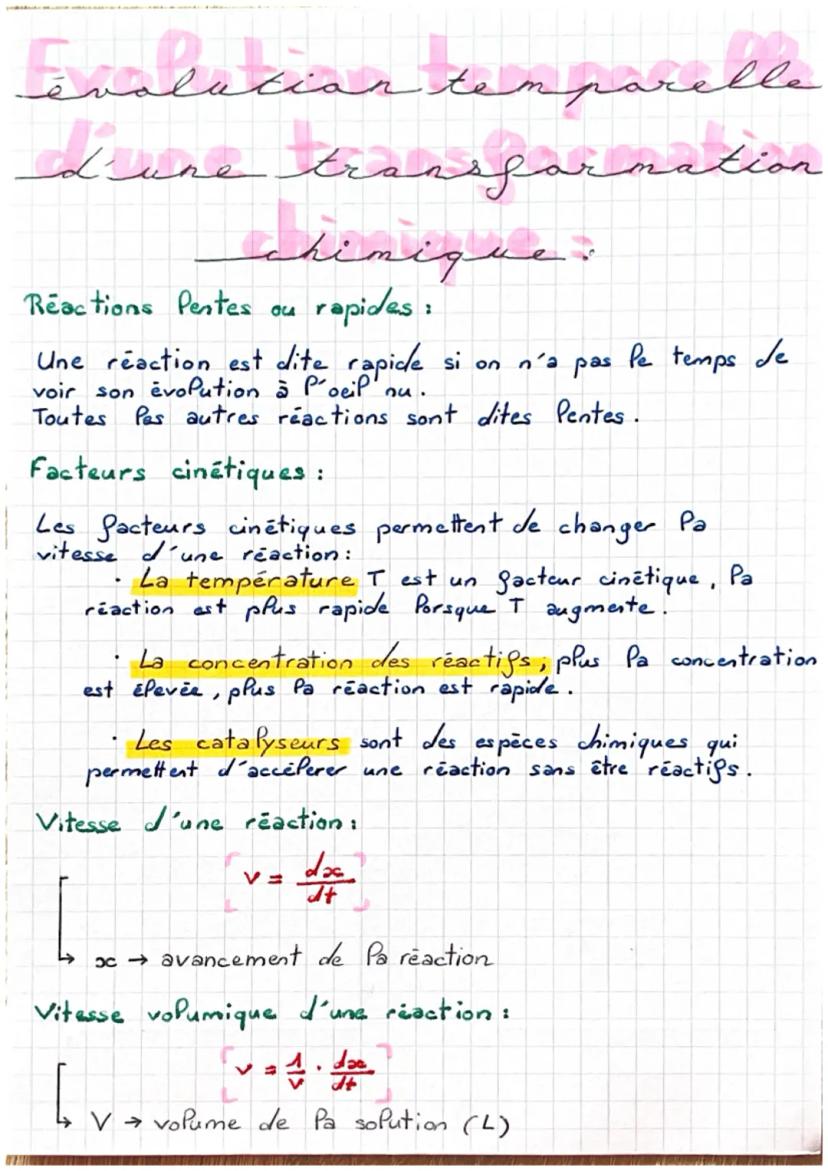 évolution temporelle
d'une transformation
chimique :
Réactions lentes ou rapides :
Une réaction est dite rapide si on n'a pas le temps de
voir son évolution à l'oeil nu.
Toutes les autres réactions sont dites lentes.
Facteurs cinétiques :
Les facteurs cinétiques permettent de changer la
vitesse d'une réaction :
· La température T est un facteur cinétique, la
réaction est plus rapide lorsque T augmente.
· La concentration des réactifs ; plus la concentration
est élevée, plus la réaction est rapide.
· Les catalyseurs sont des espèces chimiques qui
permettent d'accélerer une réaction sans être réactifs.
Vitesse d'une réaction :
v = dx/dt
↳ x → avancement de la réaction
Vitesse volumique d'une réaction :
v = 1/V . dx/dt
↳ V → volume de la solution (L)